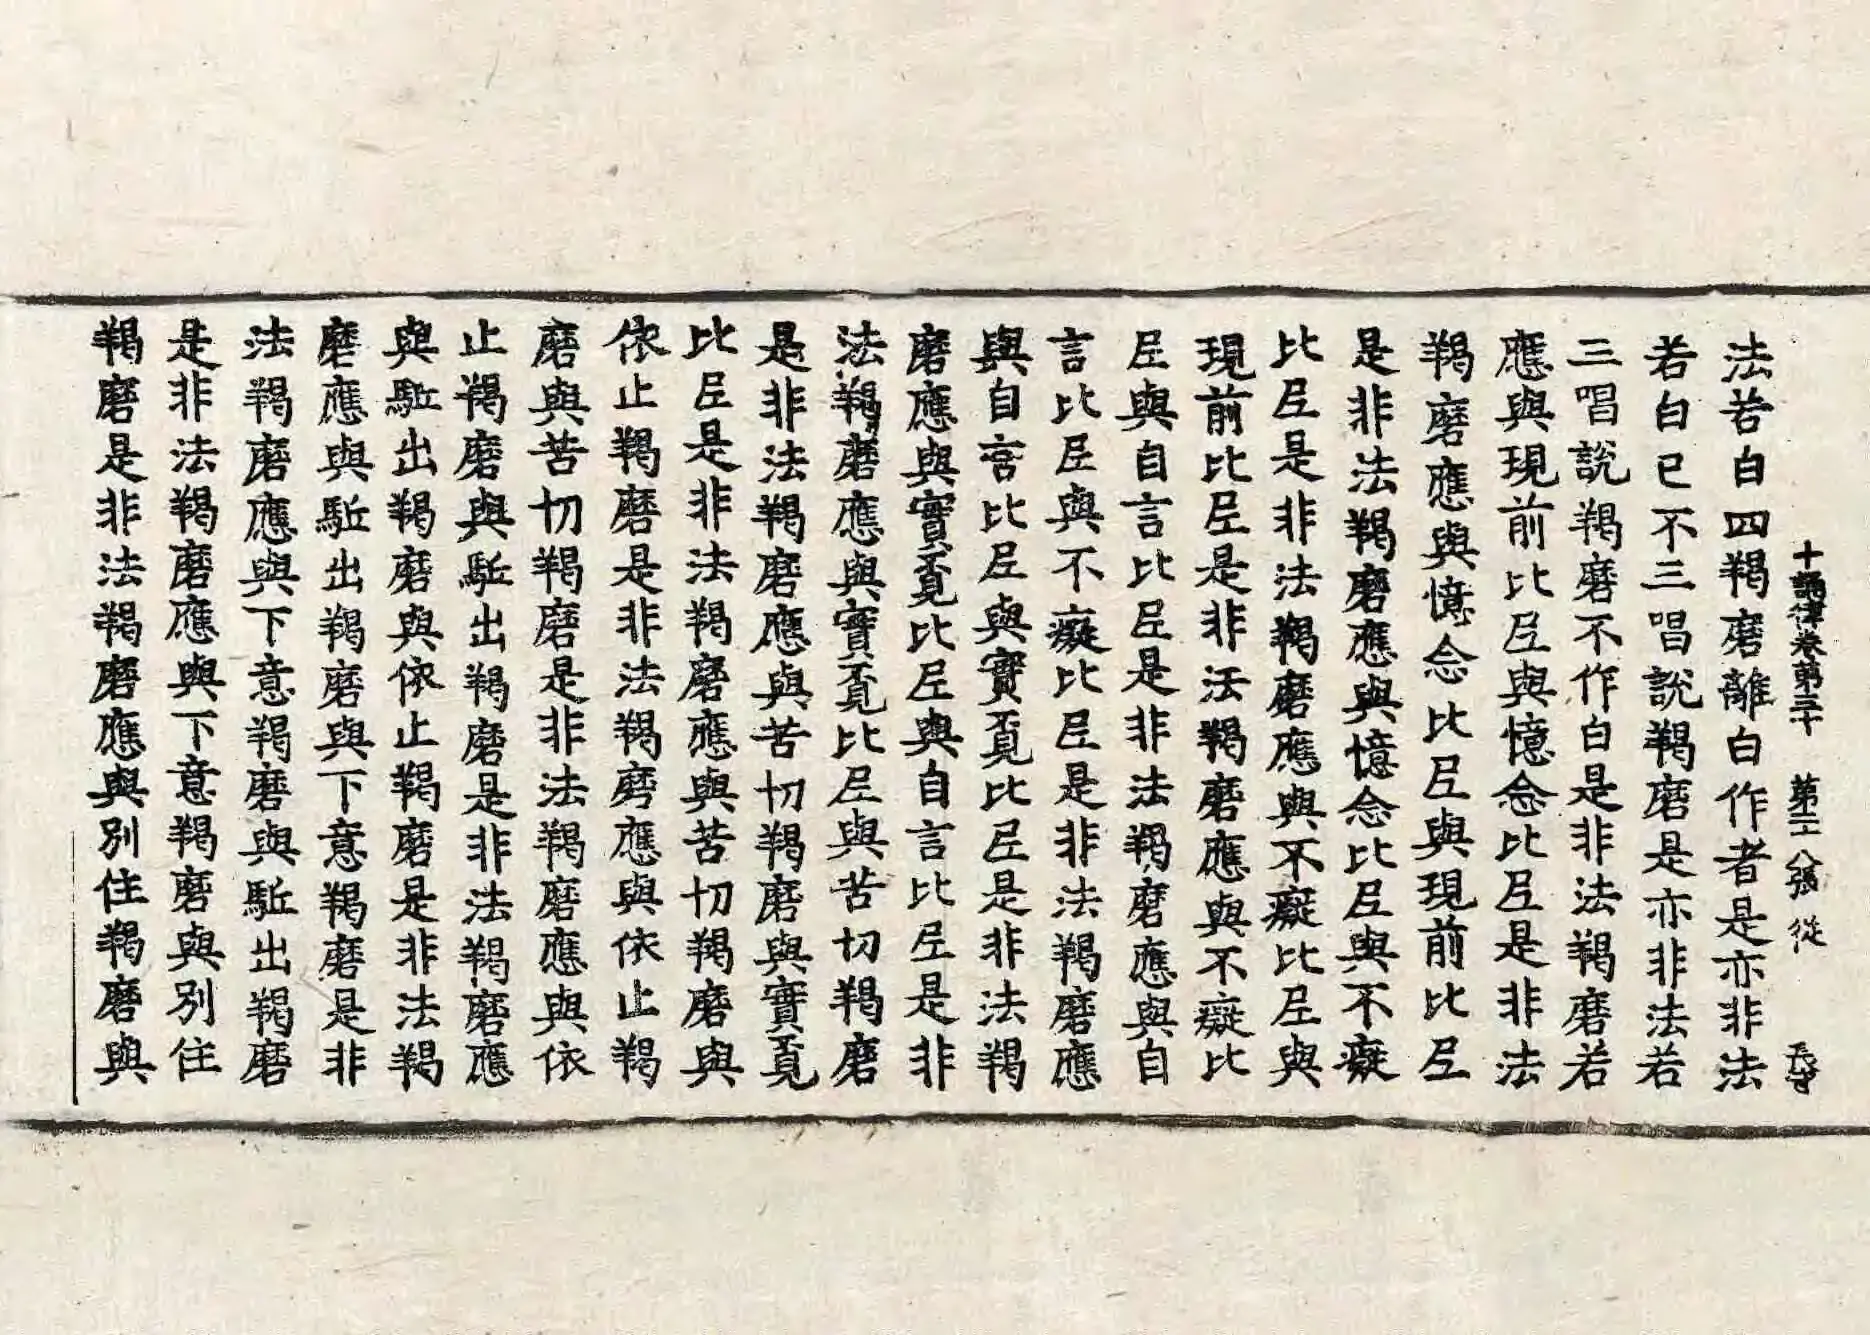 十誦律卷第三十 第二八張 從
法若白四羯磨離白作者是亦非法
若白已不三唱說羯磨是亦非法若
三唱說羯磨不作白是非法羯磨若
應與現前比𡰱與憶念比𡰱是非法
羯磨應與憶念比𡰱與現前比𡰱
是非法羯磨應與憶念比𡰱與不癡
比𡰱是非法羯磨應與不癡比𡰱與
現前比𡰱是非法羯磨應與不癡比
𡰱與自言比𡰱是非法羯磨應與自
言比𡰱與不癡比𡰱是非法羯磨應
與自言比𡰱與實覓比𡰱是非法羯
磨應與實覓比𡰱與自言比𡰱是非
法羯磨應與實覓比𡰱與苦切羯磨
是非法羯磨應與苦切羯磨與實覓
比𡰱是非法羯磨應與苦切羯磨與
依止羯磨是非法羯磨應與依止羯
磨與苦切羯磨是非法羯磨應與依
止羯磨與駈出羯磨是非法羯磨應
與駈出羯磨與依止羯磨是非法羯
磨應與駈出羯磨與下意羯磨是非
法羯磨應與下意羯磨與駈出羯磨
是非法羯磨應與下意羯磨與別住
羯磨是非法羯磨應與別住羯磨與